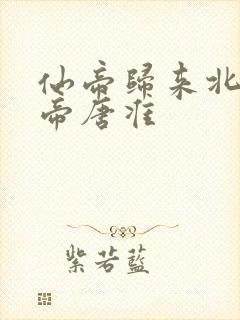 仙帝歸来北
帝唐淮
紫若藍